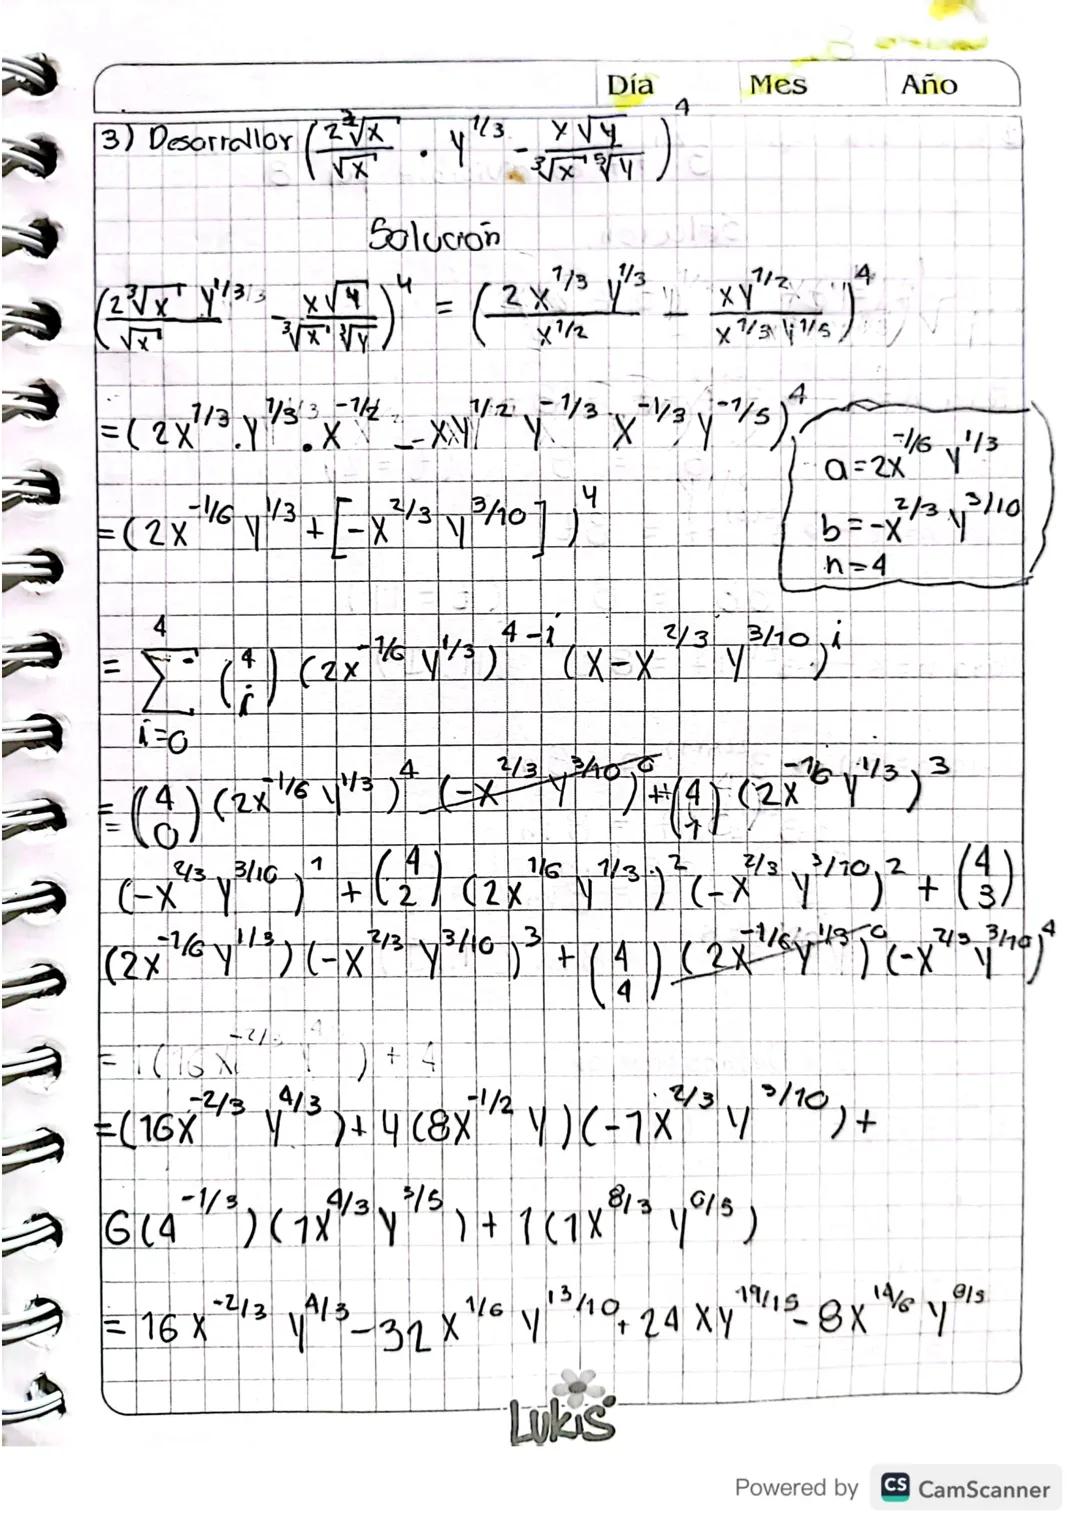 Día Mes Año
3) Desarrollar (2∛x / √x · y^1/3 - x√y / ∛x ⁵√y)^4
Solución
(2∛x y^1/3 / √x - x√y / ∛x ∛y)^4 = (2x^1/3 y^1/3 / x^1/2 - xy^1/2 / x^1/3 y^1/5)^4
=(2x^1/3 . y^1/3 . x^-1/2 - xy^1/2 y^-1/3 x^-1/3 y^-1/5)^4
=(2x^-1/6 y^1/3 + [-x^2/3 y^3/10])^4
a=2x^-1/6 y^1/3
b=-x^2/3 y^3/10
n=4
= Σ_{i=0}^{4} (4 i) (2x^-1/6 y^1/3)^4-i (x-x^2/3 y^3/10)^i
= (4 0) (2x^-1/6 y^1/3)^4 (-x^2/3 y^3/10)^0 + (4 1) (2x^-1/6 y^1/3)^3
(-x^2/3 y^3/10)^1 + (4 2) (2x^1/6 y^1/3)^2 (-x^2/3 y^3/10)^2 + (4 3)
(2x^-1/6 y^1/3) (-x^2/3 y^3/10)^3 + (4 4) (2x^-1/6 y^1/3)^0 (-x^2/3 y^3/10)^4
=(16x^-2/3 y^4/3) + 4(8x^-1/2 y)(-1x^2/3 y^3/10) +
6(4^-1/3)(1x^4/3 y^3/5) + 1(1x^8/3 y^6/5)
= 16x^-2/3 y^4/3 - 32x^1/6 y^13/10 + 24xy^19/15 - 8x^14/6 y^6/5
Lukis
Powered by CS CamScanner